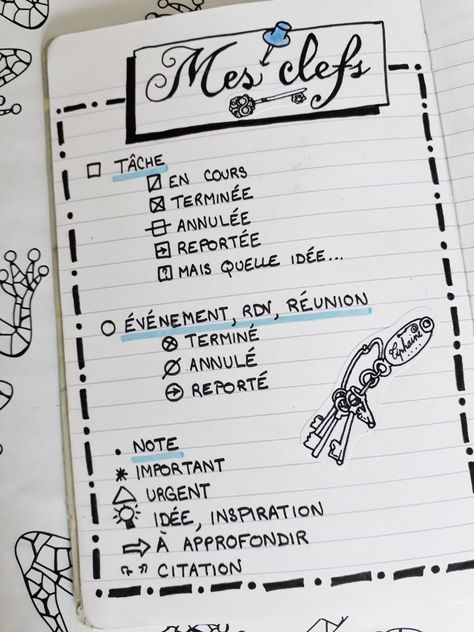 Mes clefs
TÂCHE
EN COURS
TERMINÉE
ANNULÉE
REPORTÉE
MAIS QUELLE IDÉE...
ÉVÉNEMENT, RDV, RÉUNION
TERMINÉ
ANNULÉ
REPORTÉ
NOTE
IMPORTANT
URGENT
IDÉE, INSPIRATION
À APPROFONDIR
CITATION